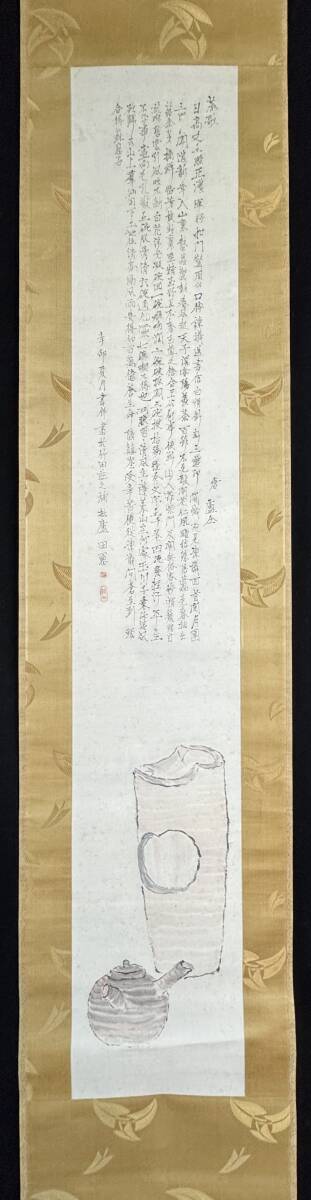 茶歌
唐 盧仝
日高丈五睡正濃將軍扣門驚周公口傳諫議送書信白絹斜封三道印開緘宛見諫議面首閱月團
三百片聞道新年入山裏蟄蟲驚動春風起天子須嘗陽羨茶百草不敢先開花仁風暗結珠蓓蕾先春抽出
黃金芽摘鮮焙芳旋封裹至精至好且不奢至尊之餘合王公何事便到山人家柴門反關無俗客紗帽籠頭自
煎喫碧雲引風吹不斷白花浮光凝碗面一碗喉吻潤二碗破孤悶三碗搜枯腸惟有文字五千卷四碗發輕汗平生
不平事盡向毛孔散五碗肌骨清六碗通仙靈七碗喫不得也唯覺兩腋習習清風生蓬萊山在何處玉川子乘此清風
欲歸去山上群仙司下土地位清高隔風雨安得知百萬億蒼生命墮顛崖受辛苦便從諫議問蒼生到頭
合得蘇息否
辛卯夏月書作畫於竹田莊之補拙廬 田憲